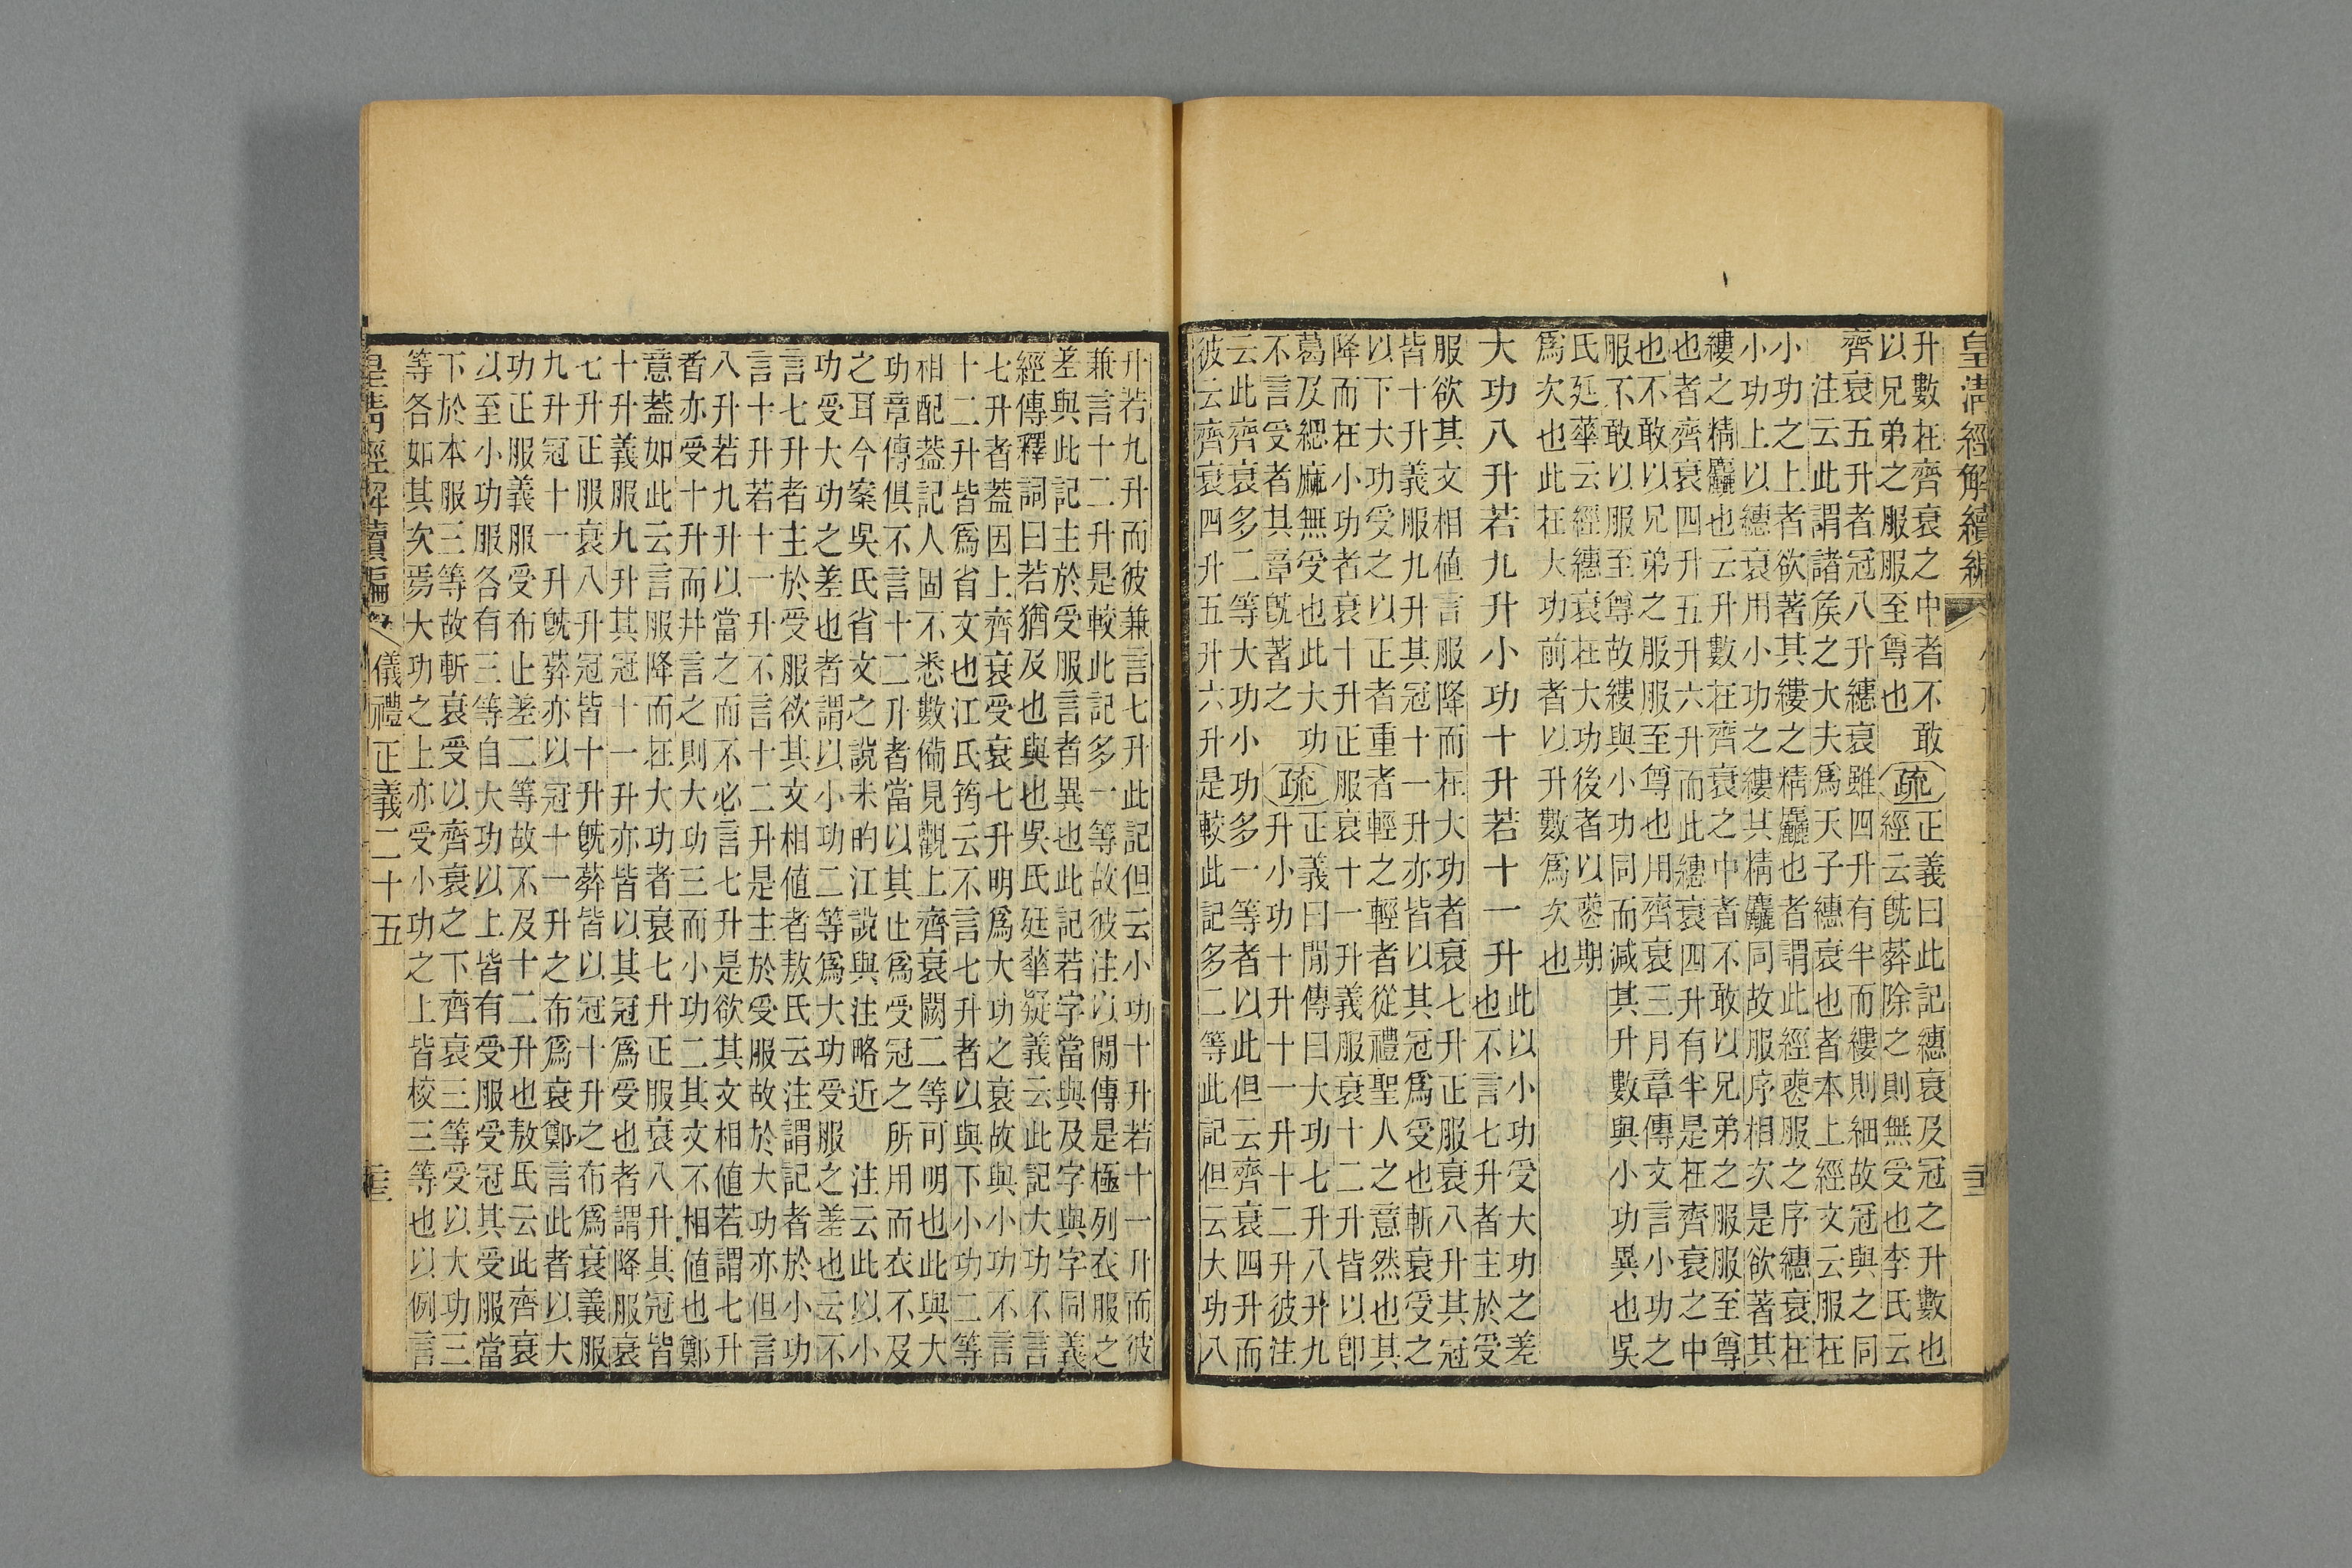 皇清經解續編
升數在齊衰之中者不敢
以兄弟之服服至尊也
疏
正義曰此記繐衰及冠之升數也
經云旣葬除之則無受也李氏云
齊衰五升者冠八升繐衰雖四升有半而縷則細故冠與之同
注云此謂諸侯之大夫爲天子繐衰也者本上經文云服在
小功之上者欲著其縷之精麤也者謂此經喪服之序繐衰在
小功上以繐衰用小功之縷其精麤同故服序相次是欲著其
縷之精麤也云升數在齊衰之中者不敢以兄弟之服服至尊
也者齊衰四升五升六升而此繐衰四升有半是在齊衰之中
也不敢以兄弟之服服至尊也用齊衰三月章傳文言小功之
服不敢以服至尊故縷與小功同而減其升數與小功異也吳
氏廷華云經繐衰在大功後者以喪期
爲次也此在大功前者以升數爲次也
大功八升若九升小功十升若十一升
此以小功受大功之差
也不言七升者主於受
服欲其文相値言服降而在大功者衰七升正服衰八升其冠
皆十升義服九升其冠十一升亦皆以其冠爲受也斬衰受之
以下大功受之以正者重者輕之輕者從禮聖人之意然也其
降而在小功者衰十升正服衰十一升義服衰十二升皆以卽
葛及緦麻無受也此大功
不言受者其章旣著之
疏
正義曰閒傳曰大功七升八升九
升小功十升十一升十二升彼注
云此齊衰多二等大功小功多一等者以此但云齊衰四升而
彼云齊衰四升五升六升是較此記多二等此記但云大功八
升若九升而彼兼言七升此記但云小功十升若十一升而彼
兼言十二升是較此記多一等故彼注以閒傳是極列衣服之
差與此記主於受服言者異也此記若字當與及字與字同義
經傳釋詞曰若猶及也與也吳氏廷華疑義云此記大功不言
七升者蓋因上齊衰受衰七升明爲大功之衰故與小功不言
十二升皆爲省文也江氏筠云不言七升者以與下小功二等
相配蓋記人固不悉數備見觀上齊衰闕二等可明也此與大
功章傳俱不言十二升者當以其止爲受冠之所用而衣不及
之耳今案吳氏省文之說未的江說與注略近 注云此以小
功受大功之差也者謂以小功二等爲大功受服之差也云不
言七升者主於受服欲其文相値者敖氏云注謂記者於小功
言十升若十一升不言十二升是主於受服故於大功亦但言
八升若九升以當之而不必言七升是欲其文相値若謂七升
者亦受十升而幷言之則大功三而小功二其文不相値也鄭
意蓋如此云言服降而在大功者衰七升正服衰八升其冠皆
十升義服九升其冠十一升亦皆以其冠爲受也者謂降服衰
七升正服衰八升冠皆十升旣葬皆以冠十升之布爲衰義服
九升冠十一升旣葬亦以冠十一升之布爲衰鄭言此者以大
功正服義服受布止差二等故不及十二升也敖氏云此齊衰
以至小功服各有三等自大功以上皆有受服受冠其受服當
下於本服三等故斬衰受以齊衰之下齊衰三等受以大功三
等各如其次焉大功之上亦受小功之上皆校三等也以例言
皇清經解續編 儀禮正義二十五